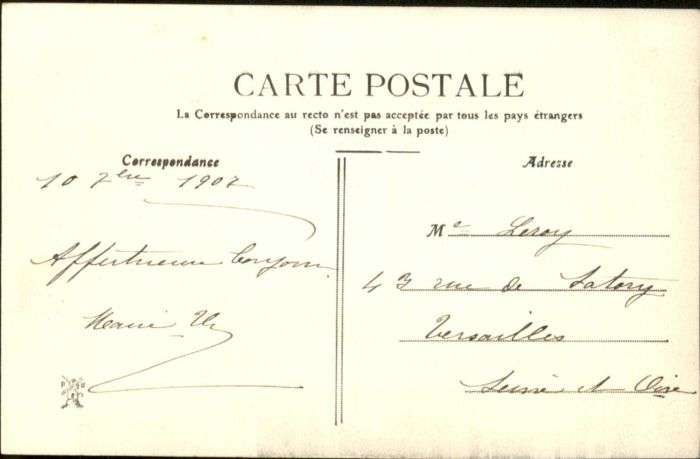 CARTE POSTALE
La Correspondance au recto n'est pas acceptée par tous les pays étrangers
(Se renseigner à la poste)
Correspondance
10 7bre 1907
Affectueux bonjour
Marie
Adresse
Me Leroy
43 rue de Satory
Versailles
Seine et Oise